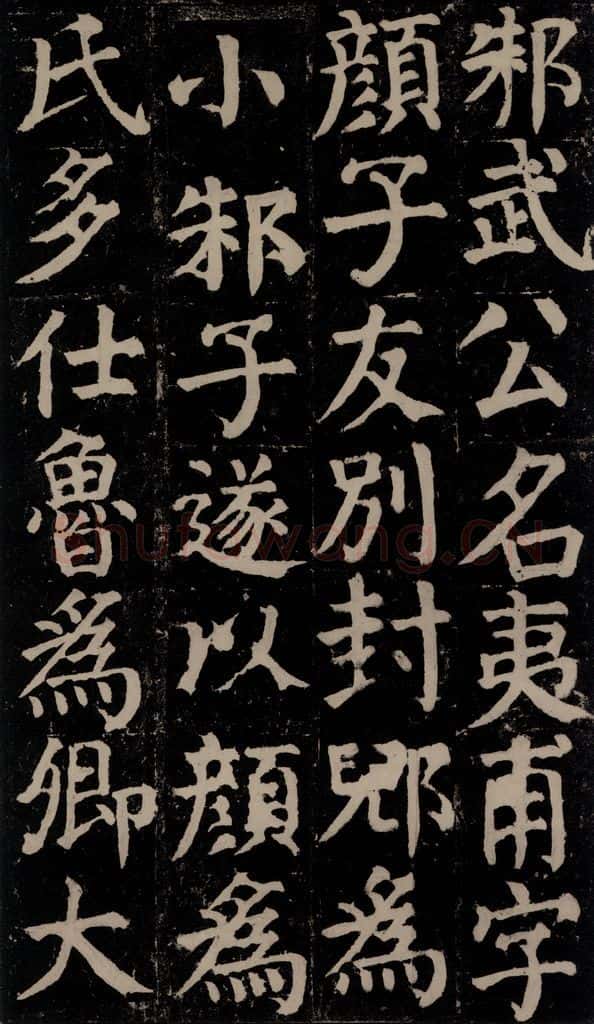 邾武公名夷甫字
顔子友別封郳爲
小邾子遂以顔爲
氏多仕魯爲卿大
Shufawang.CN